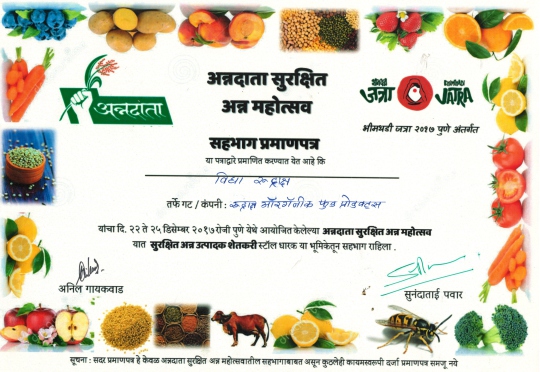 अन्नदाता
अन्नदाता सुरक्षित
अन्न महोत्सव
भीमथडी जत्रा
BHIMTHADI JATRA
भीमथडी जत्रा २०१७ पुणे अंतर्गत
सहभाग प्रमाणपत्र
या पत्राद्वारे प्रमाणित करण्यात येत आहे कि
विद्या रुद्राक्ष
तर्फे गट / कंपनी : रुद्राक्ष ऑरगॅनीक फुड प्रोडक्टस
यांचा दि. २२ ते २५ डिसेंबर २०१७रोजी पुणे येथे आयोजित केलेल्या अन्नदाता सुरक्षित अन्न महोत्सव
यात सुरक्षित अन्न उत्पादक शेतकरी स्टॉल धारक या भूमिकेतून सहभाग राहिला .
अनिल गायकवाड
सुनंदाताई पवार
सूचना : सदर प्रमाणपत्र हे केवळ अन्नदाता सुरक्षित अन्न महोत्सवातील सहभागाबाबत असून कुठलेही कायमस्वरूपी दर्जा प्रमाणपत्र समजू नये